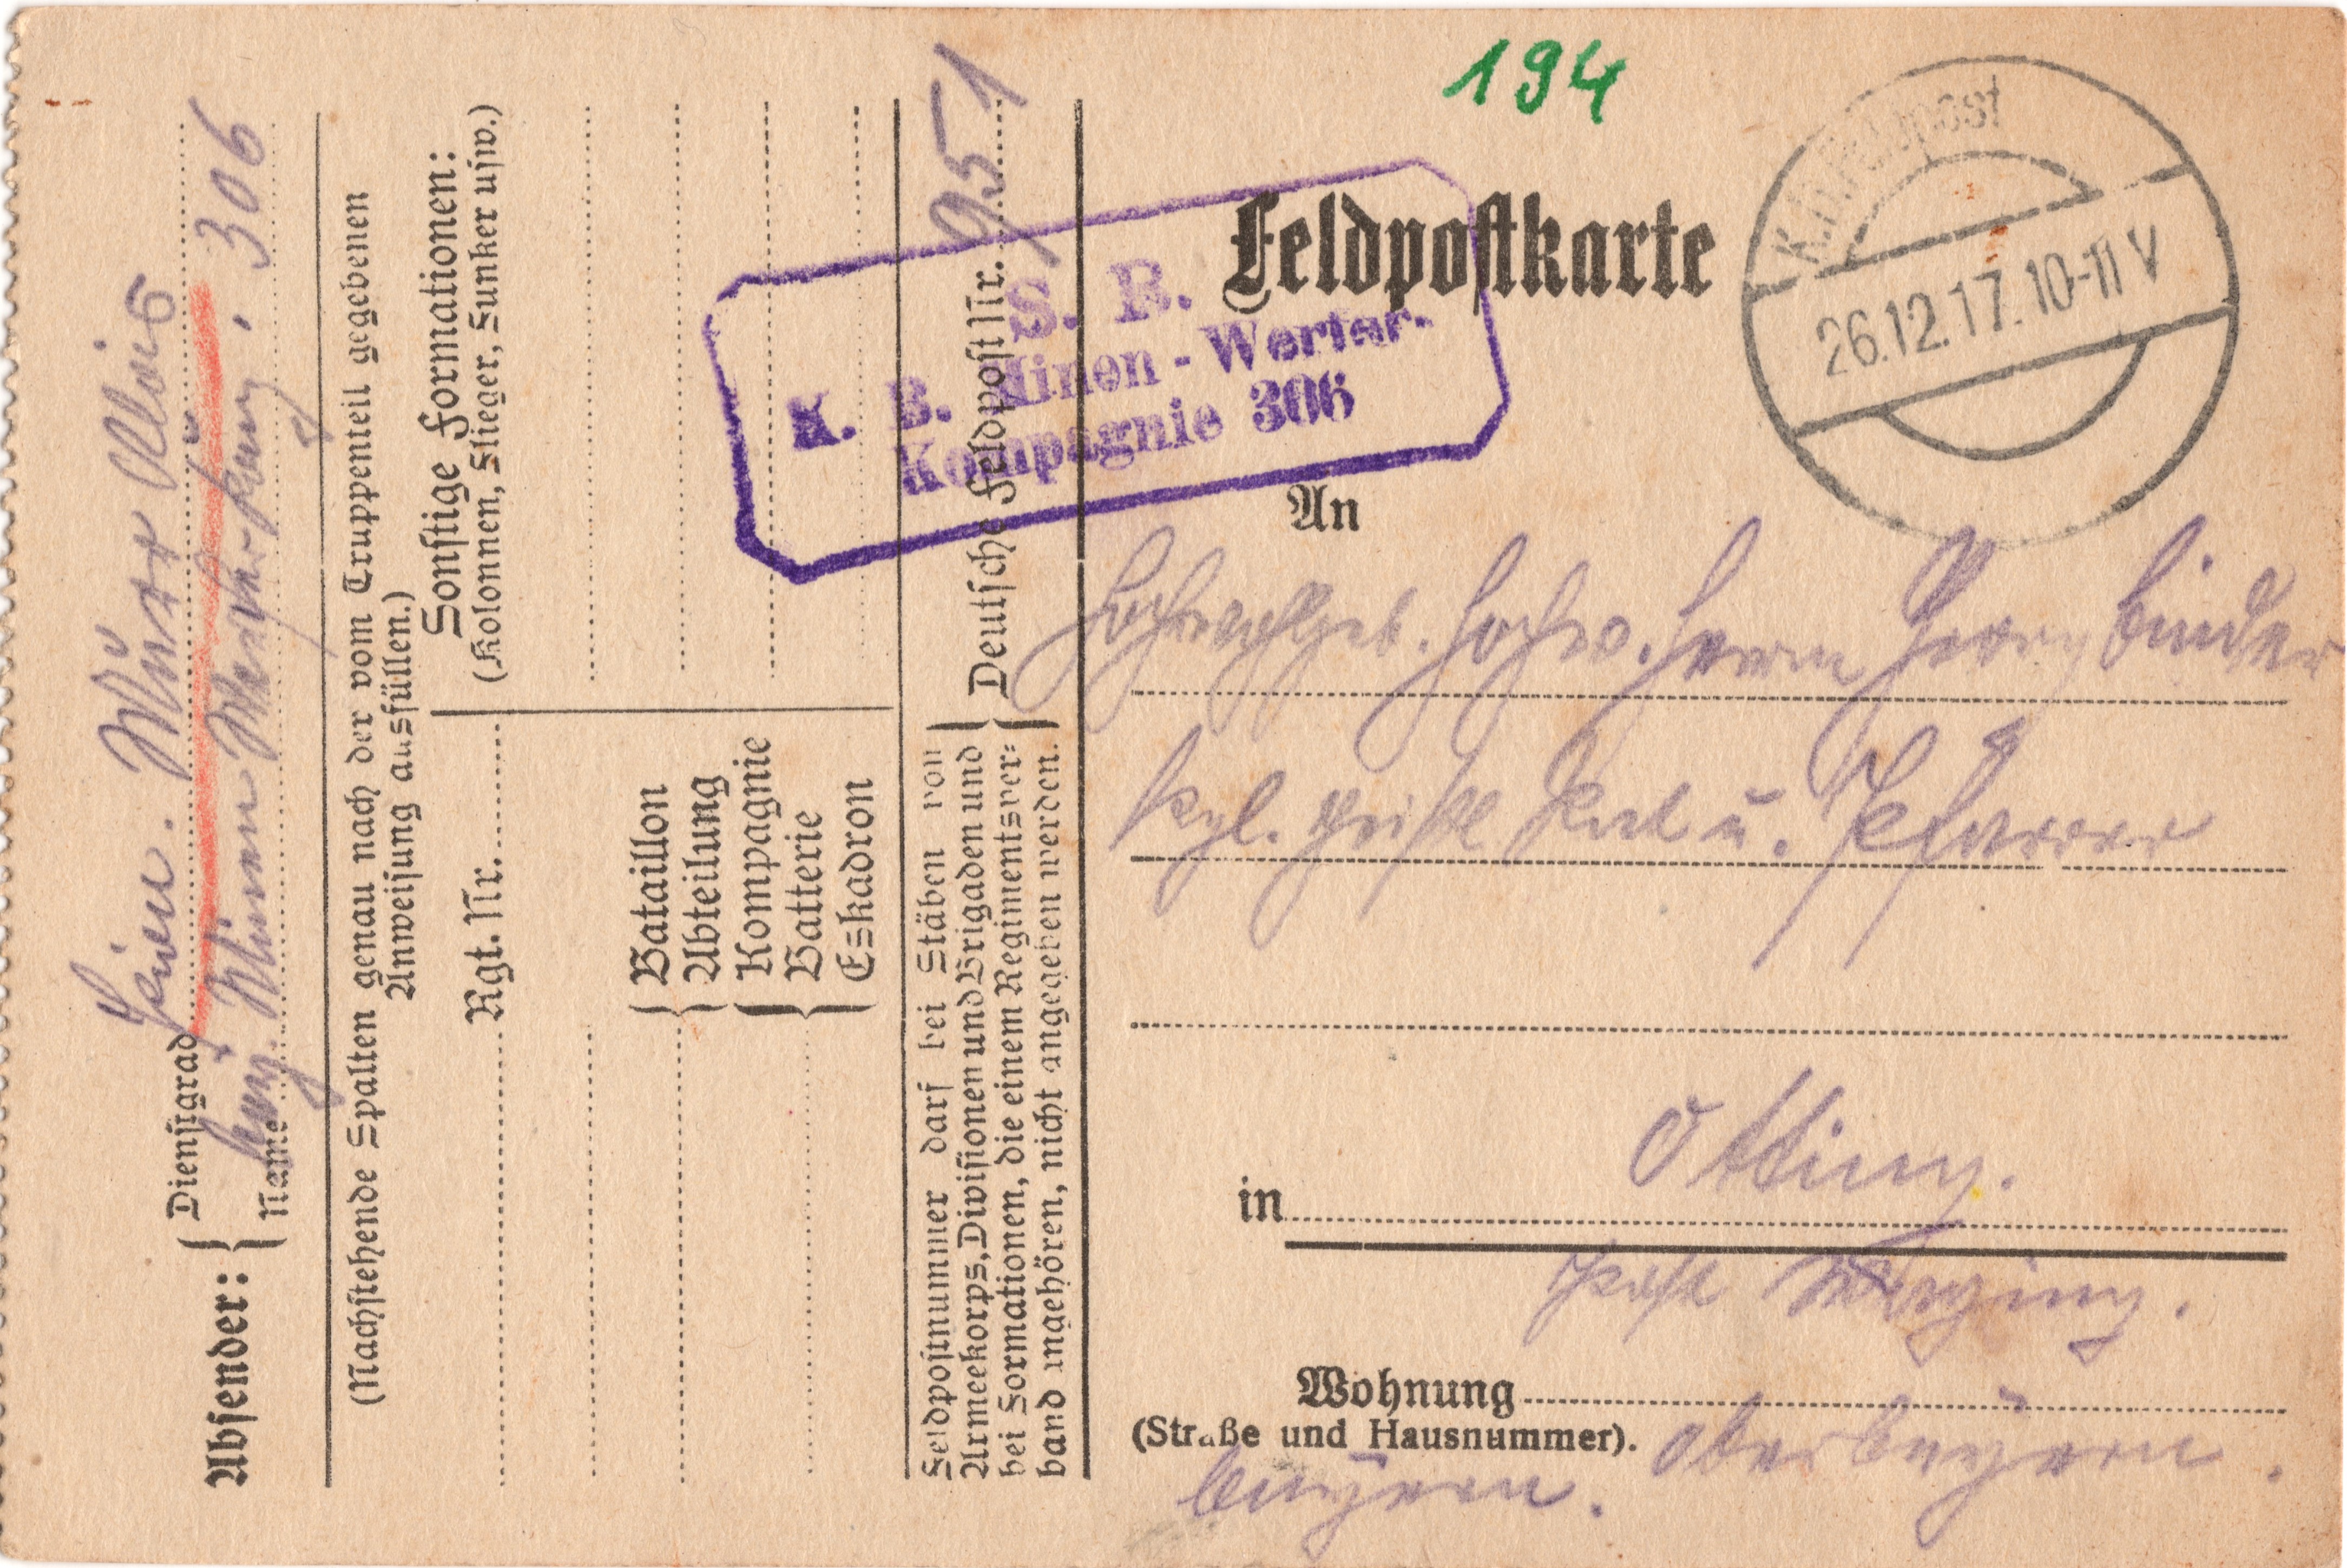 194
Feldpostkarte
K.D. Feldpost
26.12.17. 10-11 V
S. B.
K. B. Minen-Werfer-
Kompagnie 306
An
Hochwohlgeb. Hochw. Herrn Georg Binder
kgl. geistl. Rat u. Pfarrer
in Otting.
Post Waging.
Wohnung
(Straße und Hausnummer).
Oberbayern.
Bayern.
Absender:
Dienstgrad
Name
Alois
bayr. Minen Werfer Komp. 306
(Nachstehende Spalten genau nach der vom Truppenteil gegebenen
Anweisung ausfüllen.)
Rgt. Nr.
Sonstige Formationen:
(Kolonnen, Flieger, Funker usw.)
Bataillon
Abteilung
Kompagnie
Batterie
Eskadron
Feldpostnummer darf bei Stäben von
Armeekorps, Divisionen und Brigaden und
bei Formationen, die einem Regimentsver-
band angehören, nicht angegeben werden.
Deutsche Feldpost Nr. 951